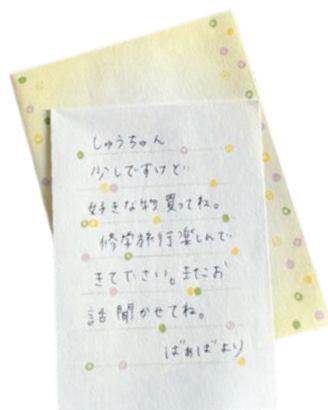 しゅうちゃん
少しですけど
好きな物買ってね。
修学旅行楽しんで
きて下さい。またお
話聞かせてね。
ばぁばより